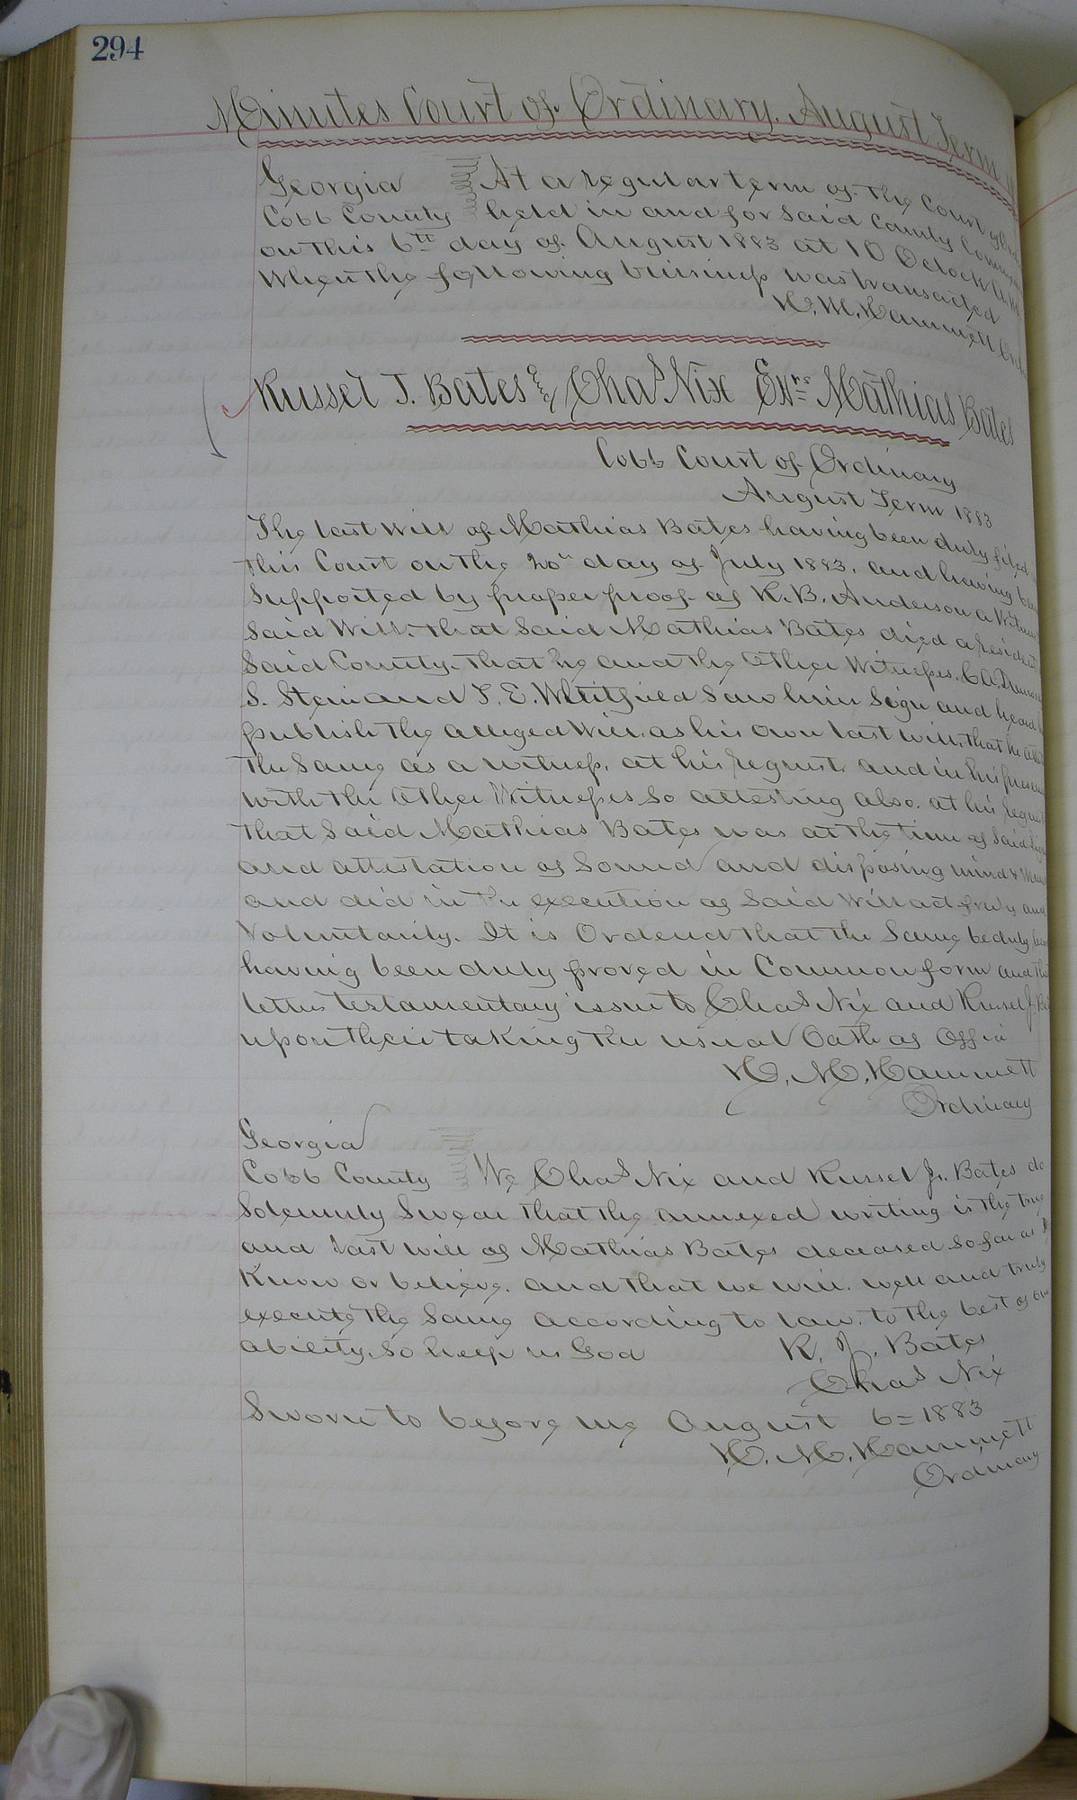 294
Minutes Court of Ordinary, August Term
Georgia At a regular term of the Court of
Cobb County held in and for Said County
on this 6th day of August 1883 at 10 Oclock A.M.
When the following business was transacted
H. M. Hammett
Russel J. Bates & Chas Nix Exrs Mathias Bates
Cobb Court of Ordinary
August Term 1883
The last will of Mathias Bates having been duly filed
this Court on the 20th day of July 1883, and having been
Supported by proper proof of R. B. Anderson a Witness
Said Will, that Said Mathias Bates died a resident
Said County, that he and the other Witnesses. C. A.
S. Stein and T. E. Whitfield Saw him Sign and heard
publish the alleged Will, as his own last will, that he
the Same as a witness, at his request and in his
with the other Witnesses So attesting also. at his
that Said Mathias Bates was at the time of Said
and attestation of Sound and disposing mind &
and did in the execution of Said Will act freely and
Voluntarily. It is Ordered that the Same be duly
having been duly proved in Common form and
letters testamentary issue to Chas Nix and Russel J.
upon their taking the usual Oath of Office
H. M. Hammett
Ordinary
Georgia
Cobb County We Chas Nix and Russel J. Bates do
Solemnly Swear that the annexed writing is the true
and last will of Mathias Bates deceased So far as
Know or believe. and that we will. well and truly
execute the Same according to law. to the best of our
ability, So help us God R. J. Bates
Chas Nix
Sworn to before me August 6= 1883
H. M. Hammett
Ordinary